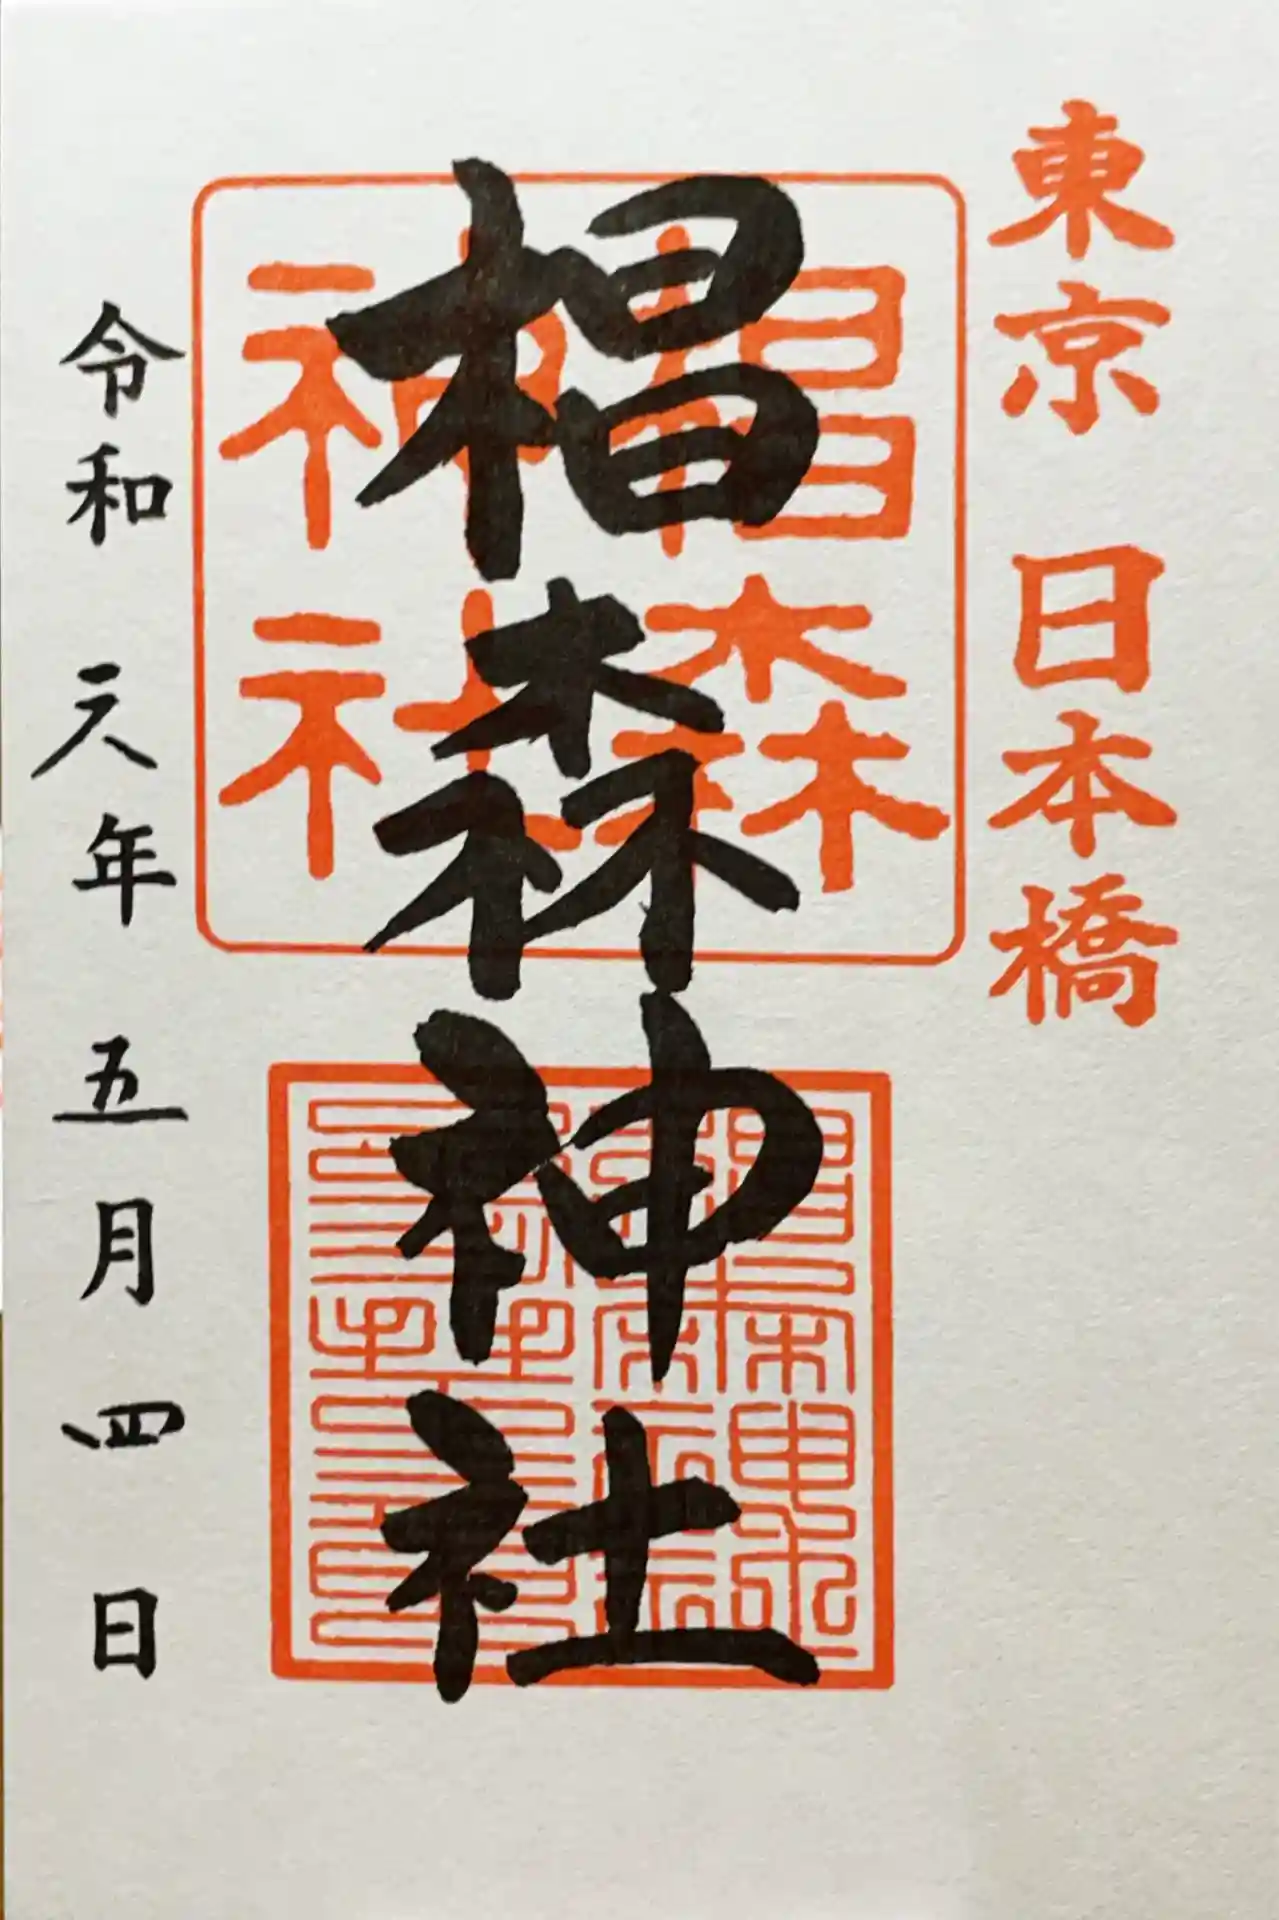 東京 日本橋
椙森
神社
椙森神社
令和 元年 五月 四日